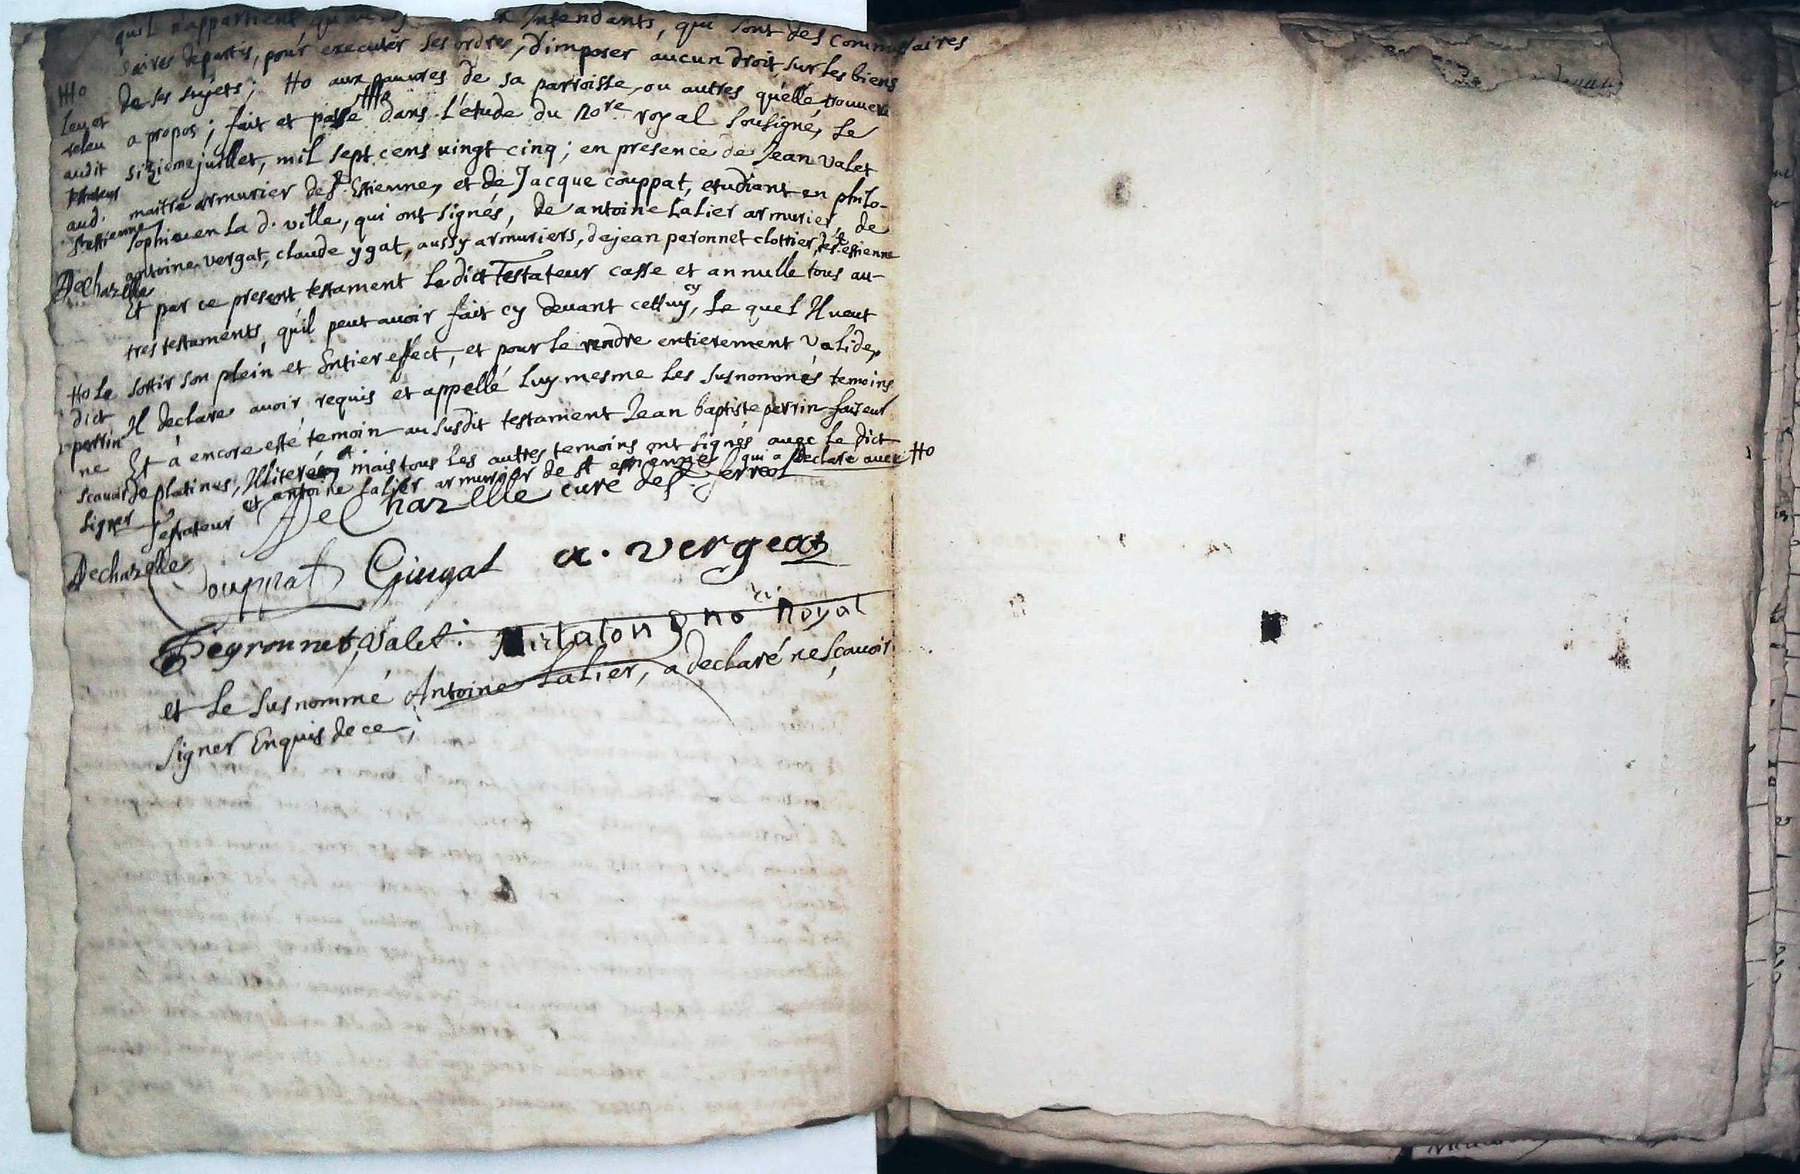 quil n'appartient intendants, qui sont des commissaires
saires departis, pour executer ses ordres, d'imposer aucun droit, sur les biens
de ses sujets; Ho aux pauvres de sa parroisse, ou autres qu'elle trouvera
a propos; fait et passé dans l'étude du nore royal sousigné, Le
sizieme juillet, mil sept cens vingt cinq; en presence de Jean valet
maitre armurier de St. Estienne, et de Jacque couppat, etudiant en philo-
sophie en La d. ville, qui ont signés, de antoine Lalier armurier, de
antoine vergat, claude ygat, aussy armuriers, de jean peronnet clottier, de St estienne
Et par ce present testament Le dict Testateur casse et annulle tous au-
tres testaments, qu'il peut avoir fait cy devant celluy cy, Le quel Il veut
sortir son plein et Entier effect, et pour le rendre entierement valide,
Il declare avoir requis et appellé Luy mesme Les susnommés temoins
Et a encore esté temoin au susdit testament Jean baptiste perrin faiseur
de platines, Illiteré, mais tous Les autres temoins ont signés avec Le dict
testateur et antoine Lalier armurier de st estienne qui a declaré avec Ho
HHo
Leu et
releu
audit
testateur
aud.
St estienne
DeChazelle
Ho Le
dict
perrin
ne
scavoir
signer
Dechazelle
DeChazelle curé de St. ferreol
Couppat Giugat a. vergeat
Peyronnet, Valet. no Royal
et Le susnommé Antoine Lalier, a declaré ne Scavoir
signer Enquis de ce,